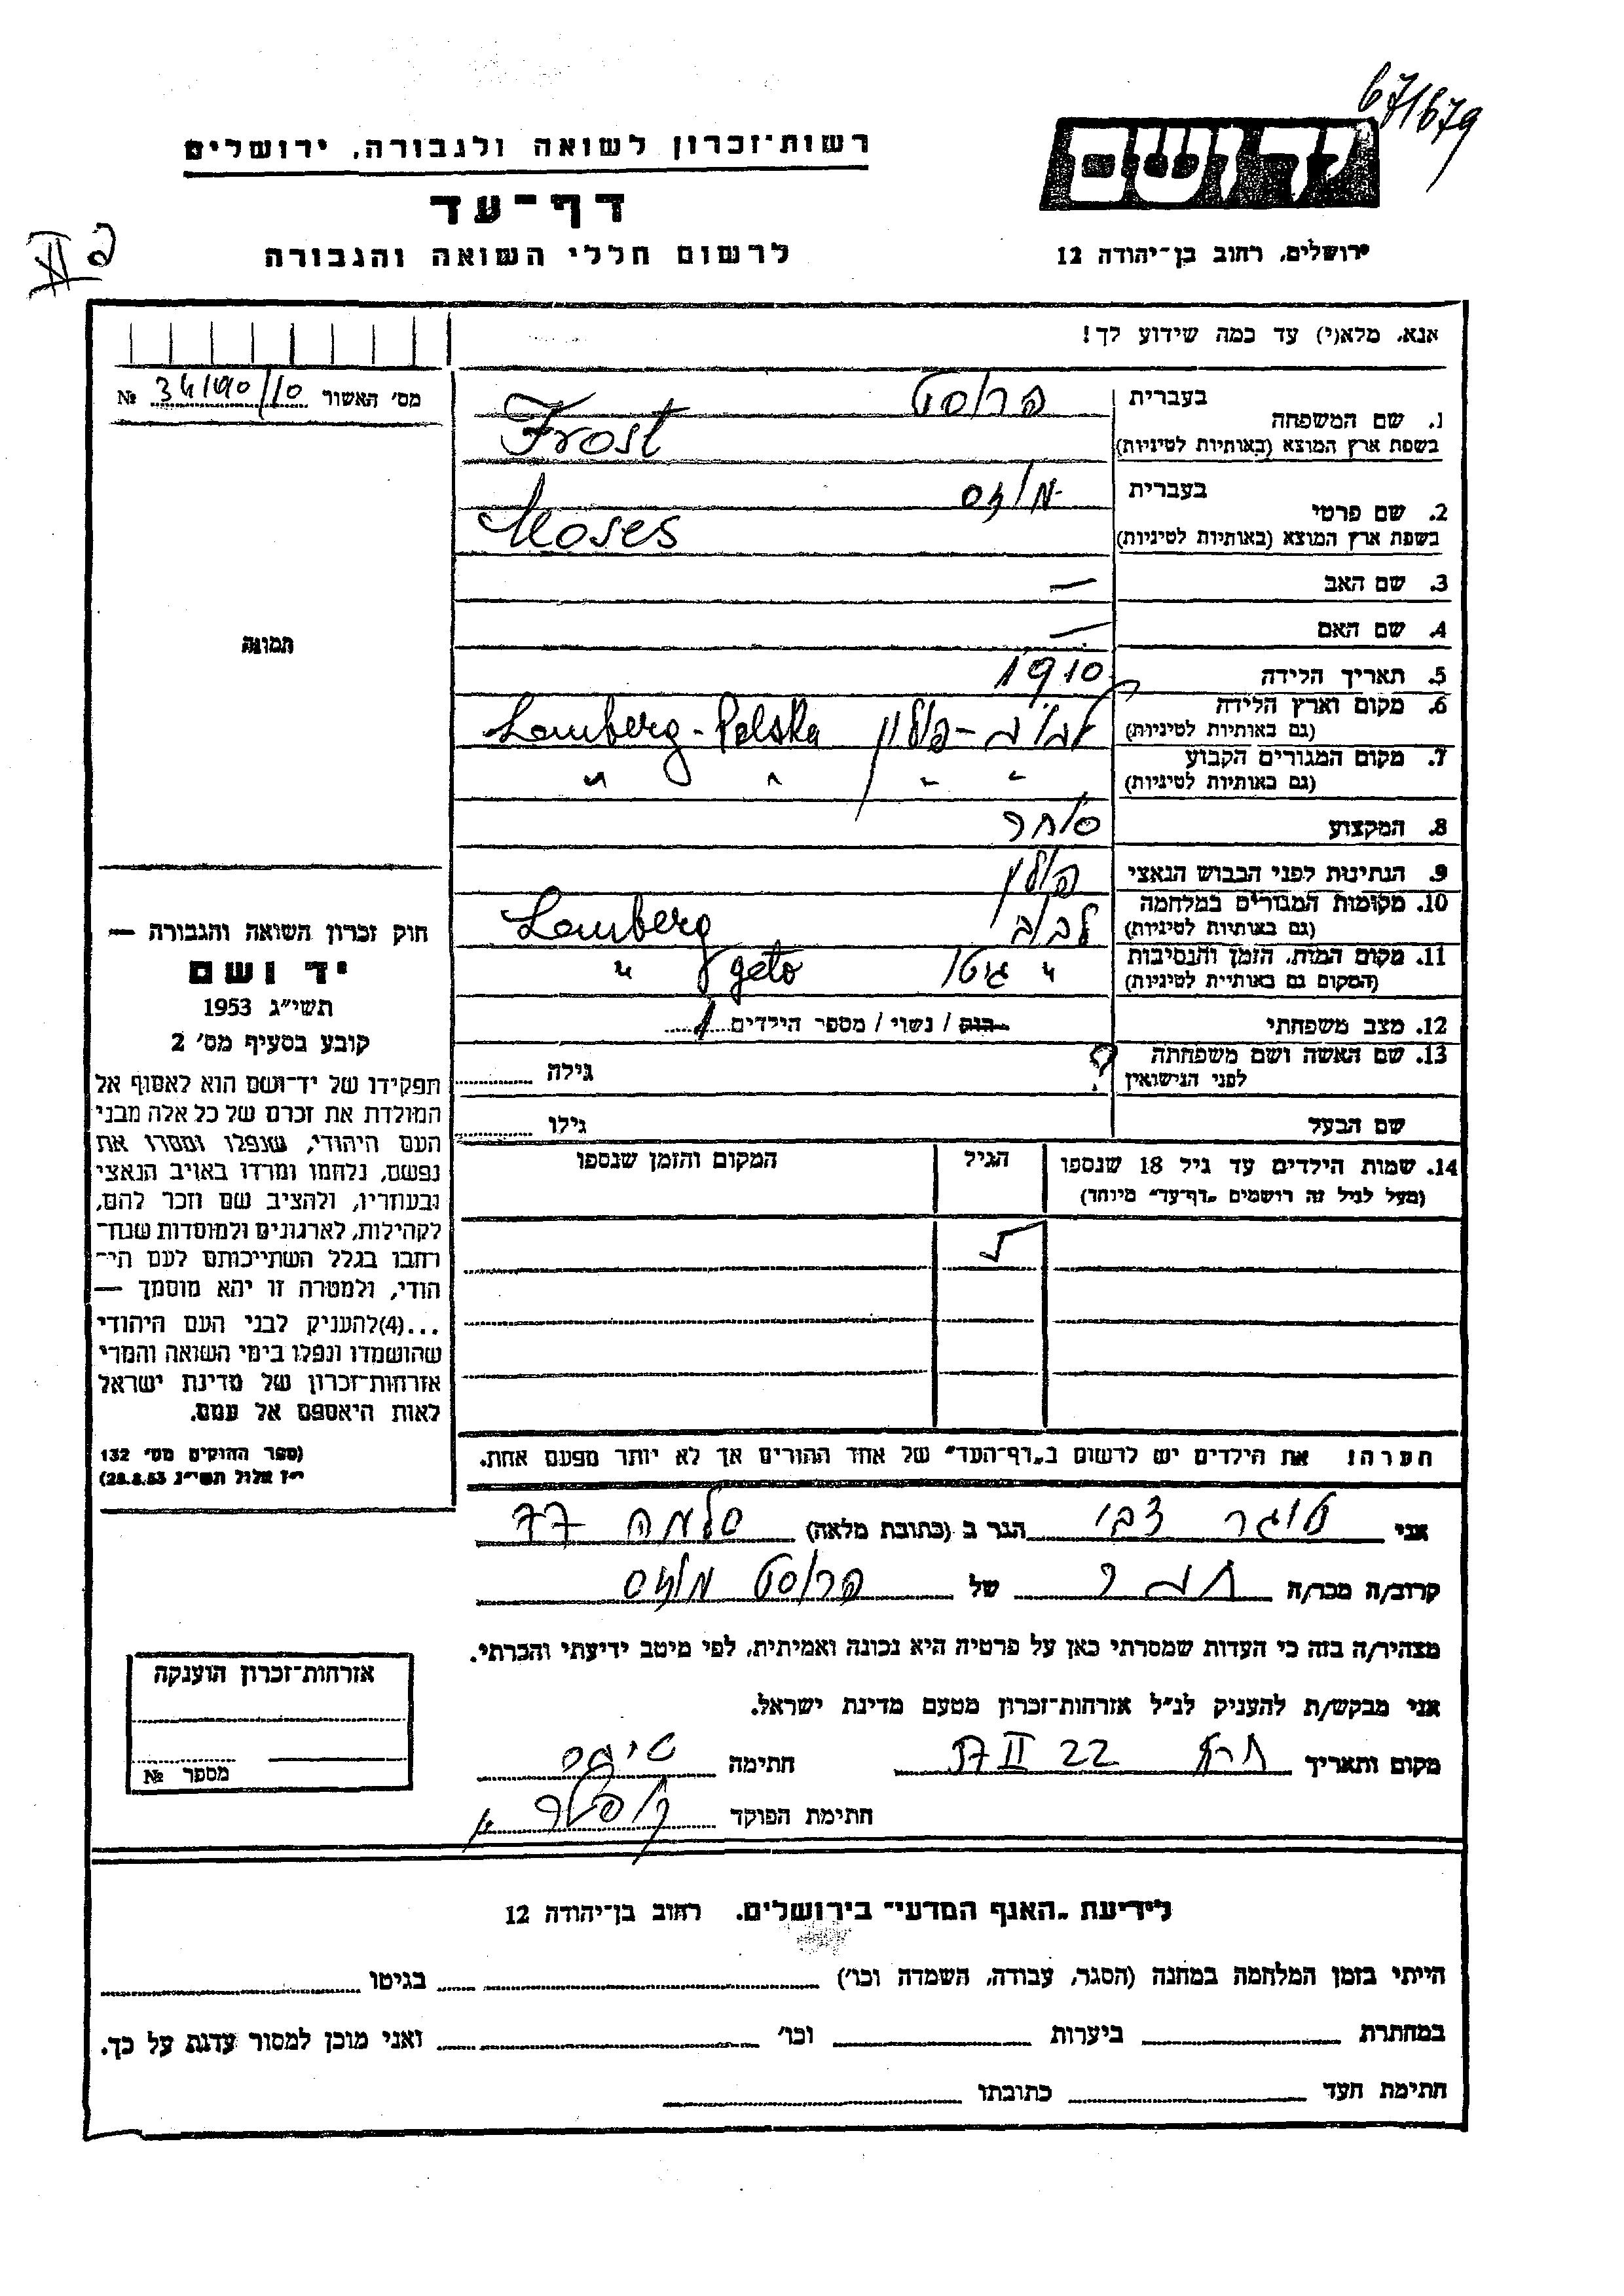 671679
יד ושם
רשות־זכרון לשואה ולגבורה, ירושלים
דף־עד
לרשום חללי השואה והגבורה
ירושלים, רחוב בן־יהודה 12
אנא, מלא(י) עד כמה שידוע לך!
מס׳ האשור 34190/10 №
1. שם המשפחה
בעברית פרוסט
בשפת ארץ המוצא (באותיות לטיניות) Frost
2. שם פרטי
בעברית מוזס
בשפת ארץ המוצא (באותיות לטיניות) Moses
3. שם האב —
4. שם האם —
תמונה
5. תאריך הלידה 1910
6. מקום וארץ הלידה לבוב – פולין Lemberg - Polska
(גם באותיות לטיניות)
7. מקום המגורים הקבוע " " " "
(גם באותיות לטיניות)
8. המקצוע סוחר
9. הנתינות לפני הכבוש הנאצי פולין
10. מקומות המגורים במלחמה לבוב Lemberg
(גם באותיות לטיניות)
11. מקום המות, הזמן והנסיבות " גיטו geto "
(המקום גם באותיות לטיניות)
12. מצב משפחתי רווק / נשוי / מספר הילדים 1
13. שם האשה ושם משפחתה ? גילה
לפני הנישואין
שם הבעל גילו
14. שמות הילדים עד גיל 18 שנספו הגיל המקום והזמן שנספו
(מעל לגיל זה רושמים „דף־עד״ מיוחד)
חוק זכרון השואה והגבורה —
יד ושם
תשי״ג 1953
קובע בסעיף מס׳ 2
תפקידו של יד־ושם הוא לאסוף אל
המולדת את זכרם של כל אלה מבני
העם היהודי, שנפלו ומסרו את
נפשם, נלחמו ומרדו באויב הנאצי
ובעוזריו, ולהציב שם וזכר להם,
לקהילות, לארגונים ולמוסדות שנח־
רבו בגלל השתייכותם לעם הי־
הודי, ולמטרה זו יהא מוסמך —
...(4)להעניק לבני העם היהודי
שהושמדו ונפלו בימי השואה והמרי
אזרחות־זכרון של מדינת ישראל
לאות היאספם אל עמם.
(ספר החוקים מס׳ 132
י״ז אלול תשי״ג 28.8.53)
הערה! את הילדים יש לרשום ב„דף־העד״ של אחד ההורים אך לא יותר מפעם אחת.
אני צבי הגר ב (כתובת מלאה) סלמה 77
קרוב/ה מכר/ה חבר של פרוסט מוזס
מצהיר/ה בזה כי העדות שמסרתי כאן על פרטיה היא נכונה ואמיתית, לפי מיטב ידיעתי והכרתי.
אני מבקש/ת להעניק לנ״ל אזרחות־זכרון מטעם מדינת ישראל.
מקום ותאריך 22 II 57 חתימה
חתימת הפוקד
אזרחות־זכרון הוענקה
מספר №
לידיעת „האגף המדעי״ בירושלים, רחוב בן־יהודה 12
הייתי בזמן המלחמה במחנה (הסגר, עבודה, השמדה וכו׳) בגיטו
במחתרת ביערות וכו׳ ואני מוכן למסור עדות על כך.
חתימת העד כתובתו